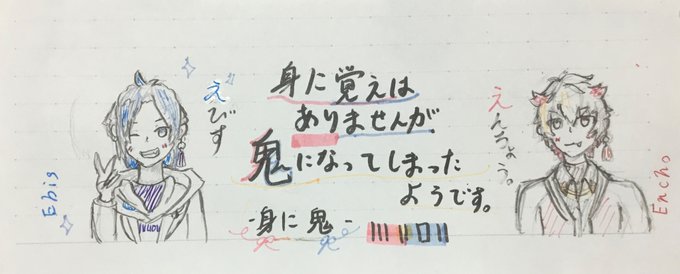 えびす
Ebis
身に覚えは
ありませんが
鬼になってしまった
ようです。
-身に鬼-
えんちょう。
Encho